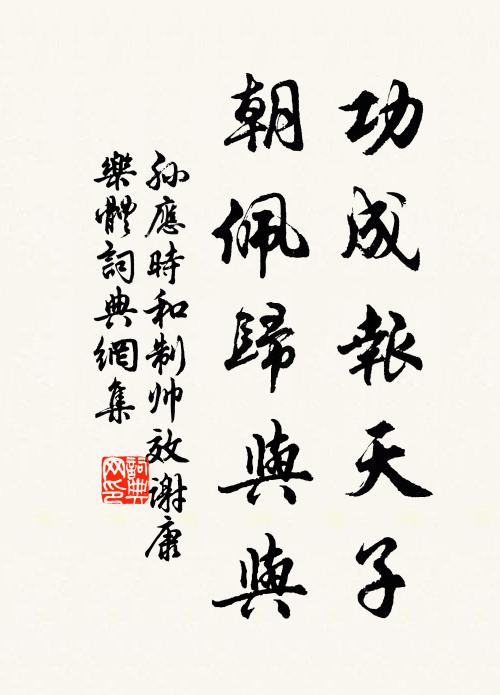 功成報天子
朝佩歸與與
孙應時和制帅效谢康
樂體詞典網集
詞典網印